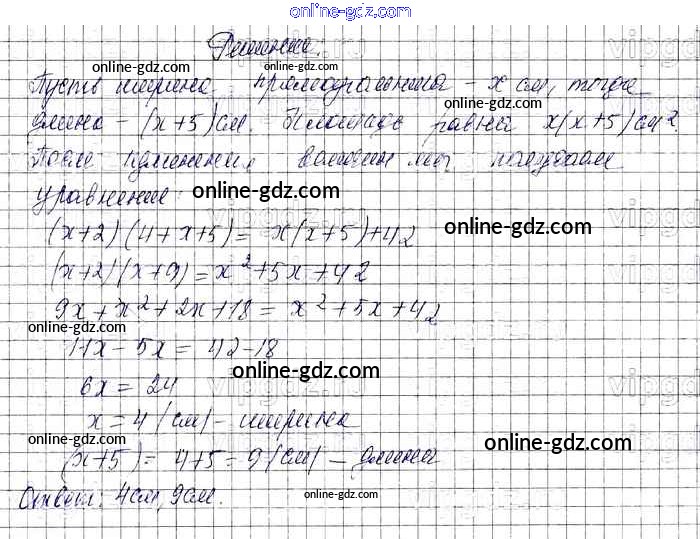 online-gdz.com
Решение.
online-gdz.com
online-gdz.com
Пусть ширина прямоугольника - x см, тогда
online-gdz.com
длина - (x+5) см. Площадь равна x(x+5) см².
online-gdz.com
После изменения величин мы получаем
уравнение:
online-gdz.com
(x+2)(4+x+5) = x(x+5)+42
online-gdz.com
(x+2)(x+9) = x²+5x+42
9x+x²+2x+18 = x²+5x+42
online-gdz.com
11x-5x = 42-18
online-gdz.com
6x = 24
online-gdz.com
x = 4 (см) - ширина
online-gdz.com
online-gdz.com
(x+5) = 4+5 = 9 (см) - длина
online-gdz.com
Ответ: 4см, 9см.
online-gdz.com